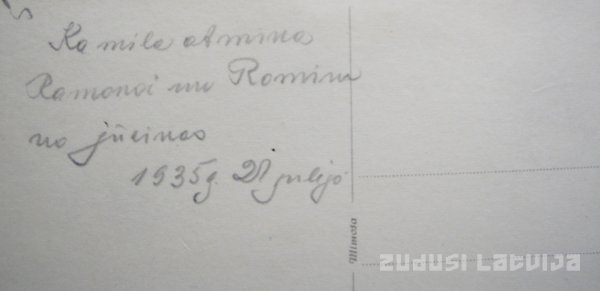 Kamila atmiņa
Ramonai un Romim
no jūsinas
1935g 21 julijo
Mimosa
ZUDUSI LATVIJA